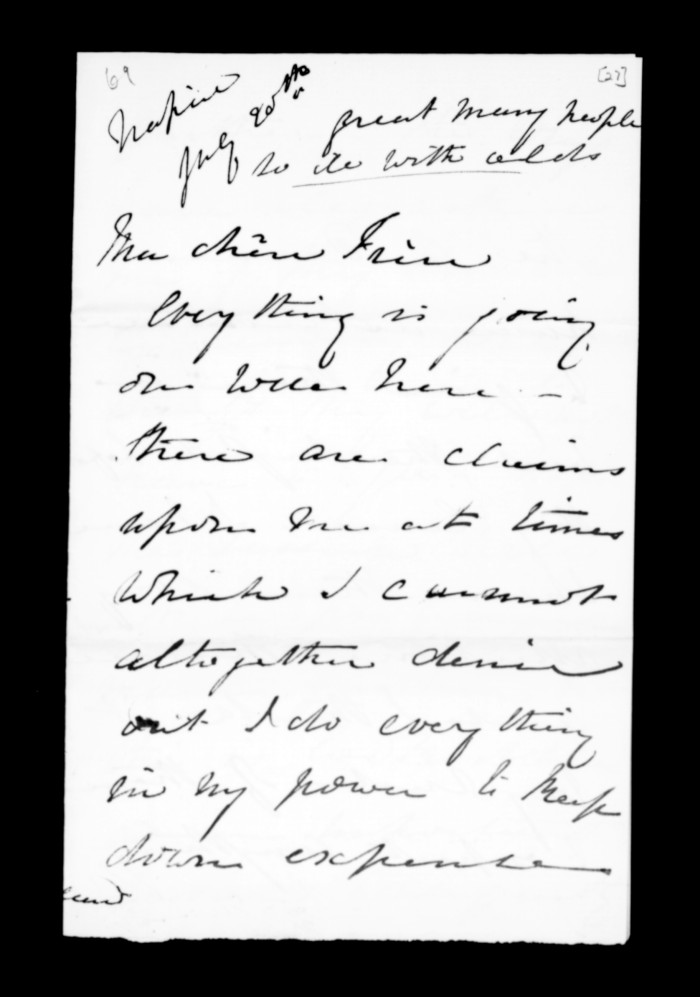 69
[27]
Napier
July 20th
great many people
to do with
Mon chère Frère
Everything is going
on well here -
there are claims
upon me at times
which I cannot
altogether denie
but I do everything
in my power to keep
down expense
and